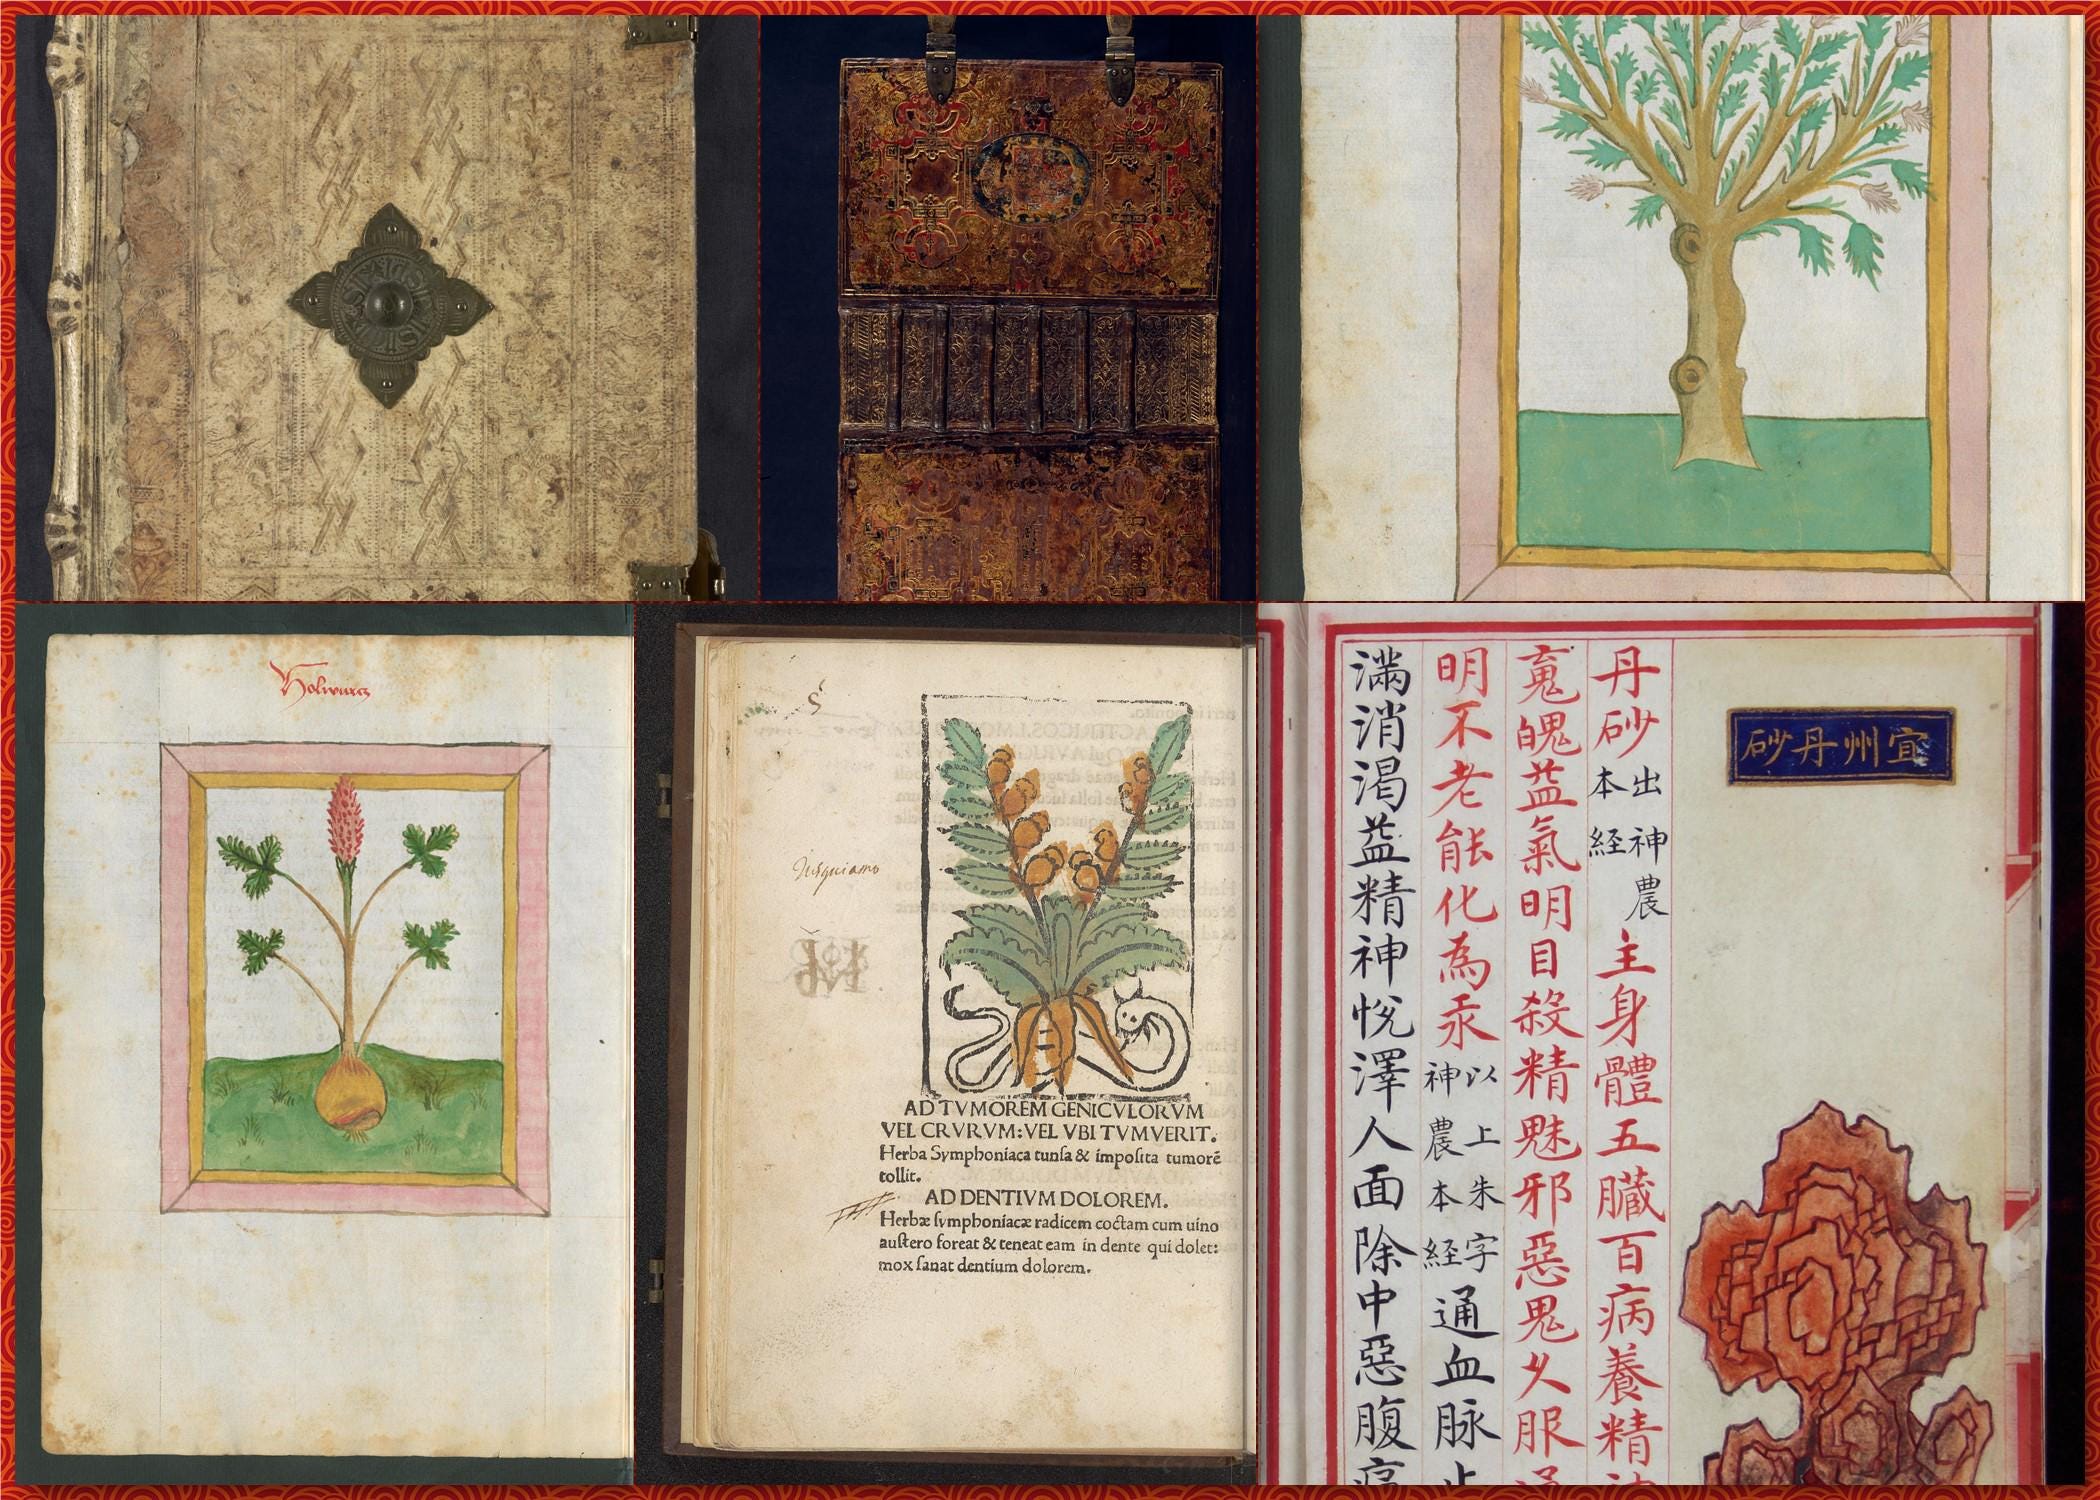 Holwurcz
Iusquiamo
AD TVMOREM GENICVLORVM
VEL CRVRVM: VEL VBI TVMVERIT.
Herba Symphoniaca tunſa & impoſita tumorē
tollit.
AD DENTIVM DOLOREM.
Herbæ ſymphoniacæ radicem coctam cum uino
auſtero ſoreat & teneat eam in dente qui dolet:
mox ſanat dentium dolorem.
宜州丹砂
丹砂出神農本経主身體五臓百病養精
䰟魄益氣明目殺精魅邪惡鬼乆服通
明不老能化為汞以上朱字神農本経通血脉止
滿消渴益精神悅澤人面除中惡腹